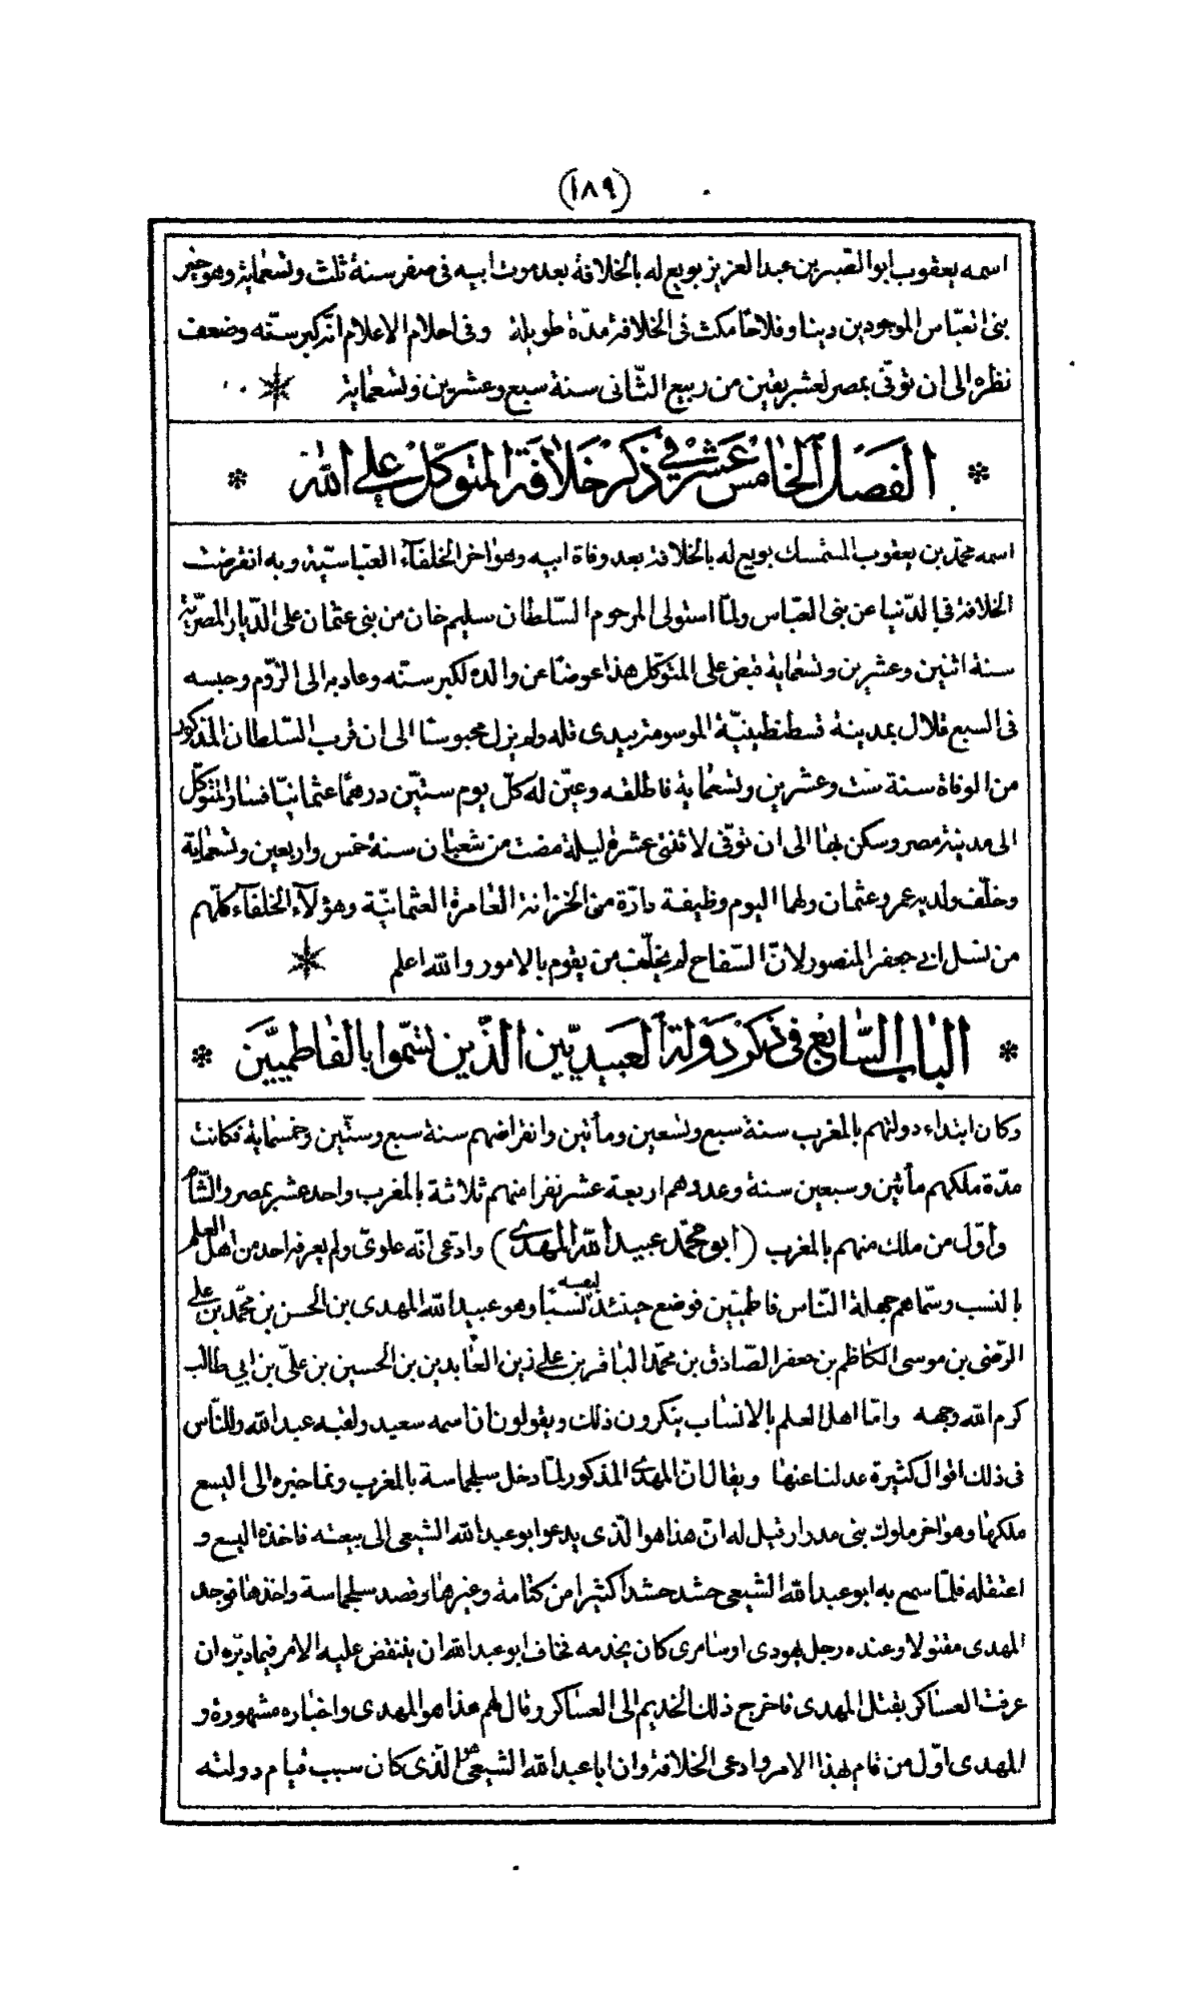 (١٨٩)
اسمه يعقوب ابو الصبر بن عبد العزيز بويع له بالخلافة بعد موت ابيه فى صفر سنة ثلث وتسعماية وهو خير
بنى العبّاس الموجودين دينا وفلاحًا مكث فى الخلافة مدّة طويلة وفى احلام الاعلام انّه كبر سنّه وضعف
نظره الى ان توفّى بمصر لعشر بقين من ربيع الثّانى سنة سبع وعشرين وتسعماية
الفصل الخامس عشر فى ذكر خلافة المتوكّل على الله
اسمه محمّد بن يعقوب المستمسك بويع له بالخلافة بعد وفاة ابيه وهو اخر الخلفآء العبّاسيّة وبه انقرضت
الخلافة فى الدّنيا عن بنى العبّاس ولمّا استولى المرحوم السّلطان سليم خان من بنى عثمان على الدّيار المصريّة
سنة اثنين وعشرين وتسعماية قبض على المتوكّل هذا عوضًا عن والده لكبر سنّه وعاد به الى الرّوم وحبسه
فى السبع قلال بمدينة قسطنطينيّة الموسومة بيدى قله ولم يزل محبوسًا الى ان قرب السّلطان المذكور
من الوفاة سنة ست وعشرين وتسعماية فاطلقه وعيّن له كلّ يوم ستّين درهمًا عثمانيّا فسار المتوكّل
الى مدينة مصر وسكن بها الى ان توفّى لاثنتى عشرة ليلة مضت من شعبان سنة خمس واربعين وتسعماية
وخلّف ولديه عمر وعثمان ولهما اليوم وظيفة دارّة من الخزانة العامرة العثمانيّة وهؤلآء الخلفآء كلّهم
من نسل ابى جعفر المنصور لانّ السّفاح لم يخلّف من يقوم بالامور والله اعلم
الباب السّابع فى ذكر دولة العبيديّين الذين تسمّوا بالفاطميّين
وكان ابتداء دولتهم بالمغرب سنة سبع وتسعين ومأتين وانقراضهم سنة سبع وستّين وخمسماية فكانت
مدّة ملكهم مأتين وسبعين سنة وعددهم اربعة عشر نفرا منهم ثلاثة بالمغرب واحد عشر بمصر والشّام
وأوّل من ملك منهم بالمغرب (ابو محمّد عبيد الله المهدى) وادعى انّه علوىّ ولم يعرفه احد من اهل العلم
بالنسب وسمّاهم جهلة النّاس فاطميّين فوضع حينئذ لنفسه نسبًا وهو عبيد الله المهدى بن الحسن بن محمّد بن على
الرّضى بن موسى الكاظم بن جعفر الصّادق بن محمّد الباقر بن على زين العابدين بن الحسين بن علىّ بن ابي طالب
كرم الله وجهه وامّا اهل العلم بالانساب ينكرون ذلك ويقولون ان اسمه سعيد ولقبه عبد الله وللنّاس
فى ذلك اقوال كثيرة عدلنا عنها ويقال ان المهدى المذكور لمّا دخل سجلماسة بالمغرب ونما خبره الى اليسع
ملكها وهو اخر ملوك بنى مدرار قيل له انّ هذا هو الّذى يدعو ابو عبد الله الشيعى الى بيعته فاخذه اليسع و
اعتقله فلمّا سمع به ابو عبد الله الشيعى حشد حشدا كثيرا من كتامة وغيرها وقصد سجلماسة واخذها فوجد
المهدى مقتولا وعنده رجل يهودى او سامرى كان يخدمه فخاف ابو عبد الله ان ينتقض عليه الامر فيما دبّره ان
عرفت العساكر بقتل المهدى فاخرج ذلك الخديم الى العساكر وقال لهم هذا هو المهدى واخباره مشهورة و
المهدى اوّل من قام بهذا الامر وادعى الخلافة وان ابا عبد الله الشيعى الّذى كان سبب قيام دولته